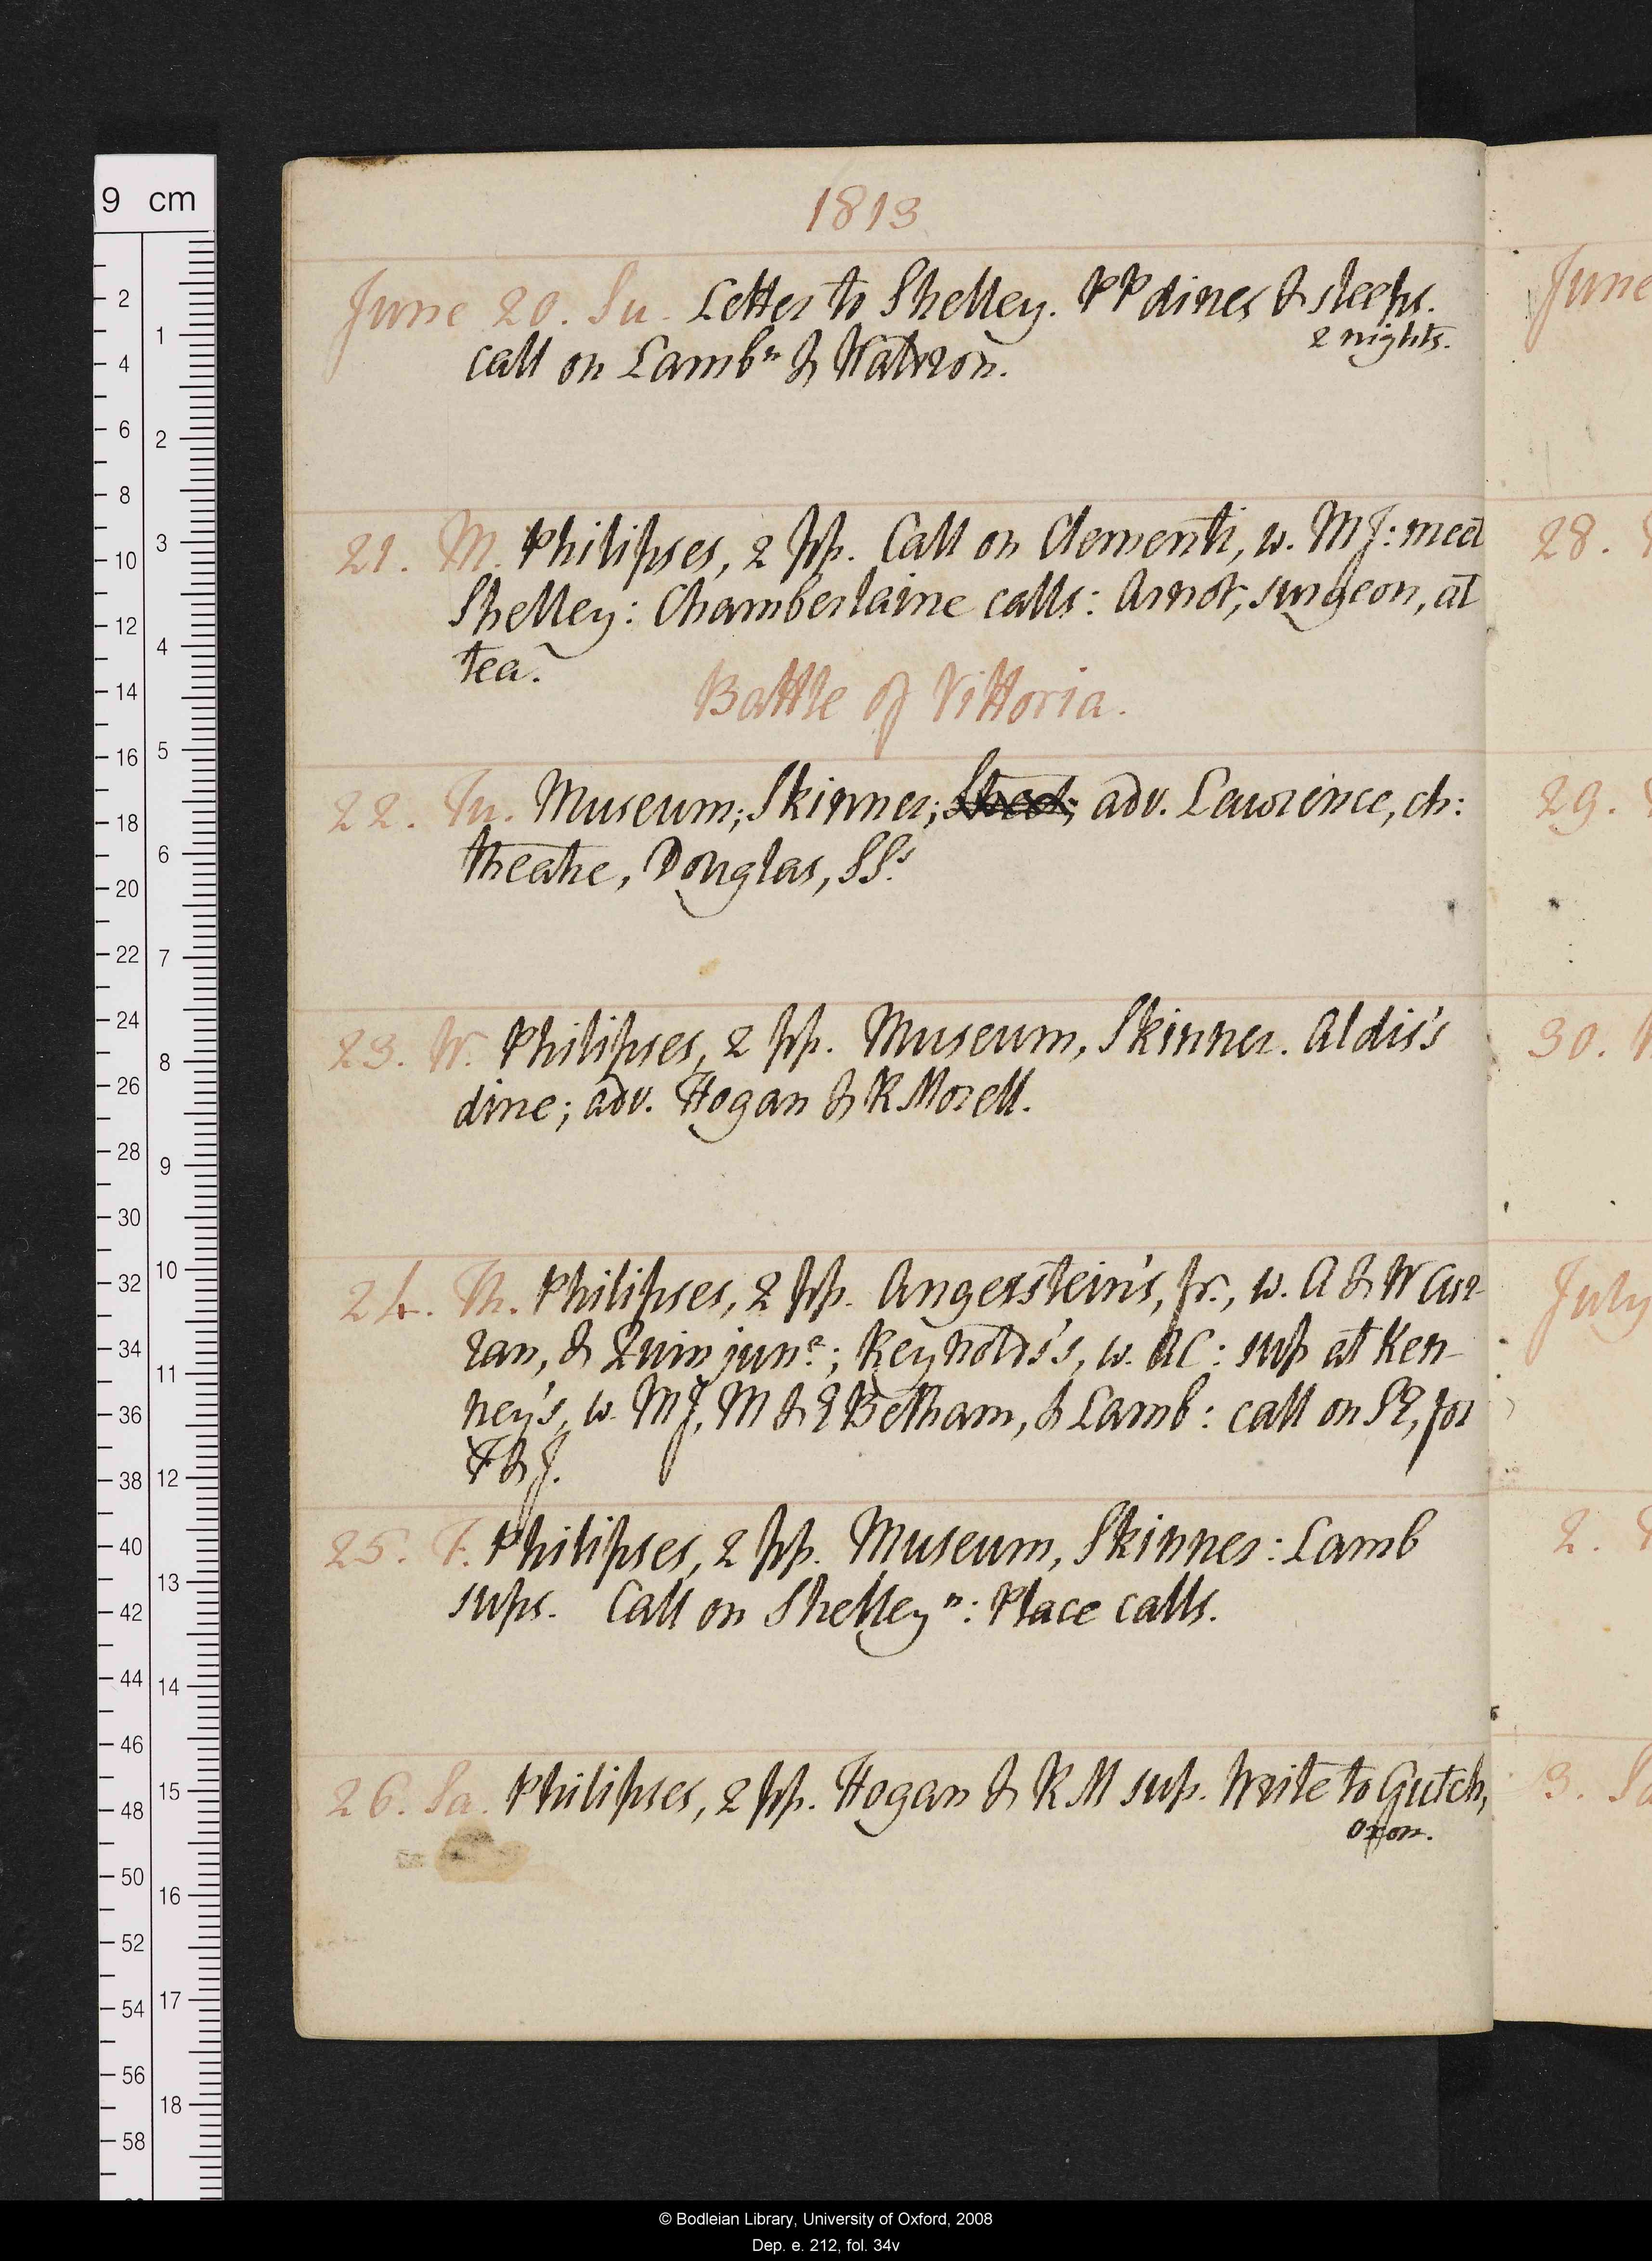 1813
June 20. Su. Letter to Shelley. PP dines & sleeps.
2 nights.
call on Lambⁿ & Watson.
21. M. Philipses, 2 pp. Call on Clementi, w. MJ: meet
Shelley: Chamberlaine calls: Arnot, surgeon, at
tea.
Battle of Vittoria.
22. Tu. Museum; Skinner; Street; adv. Lawrence, ch:
theatre, Douglas, SS.ˢ
23. W. Philipses, 2 pp. Museum, Skinner. Aldis's
dine; adv. Hogan & R Morell.
24. Th. Philipses, 2 pp. Angerstein's, jr., w. A & W Cur-
ran, & Quin junʳ.; Reynolds's, w. AC: sup at Ken-
ney's, w. MJ, M & E Betham, & Lamb: call on SE, for
T & J.
25. F. Philipses, 2 pp. Museum, Skinner: Lamb
sups. Call on Shelleyⁿ: Place calls.
26. Sa. Philipses, 2 pp. Hogan & R M sup. Write to Gutch,
Oxon.
June
28.
29.
30.
July
2.
3. Sa
9 cm
2
4
6
8
10
12
14
16
18
20
22
24
26
28
30
32
34
36
38
40
42
44
46
48
50
52
54
56
58
1
2
3
4
5
6
7
8
9
10
11
12
13
14
15
16
17
18
© Bodleian Library, University of Oxford, 2008
Dep. e. 212, fol. 34v